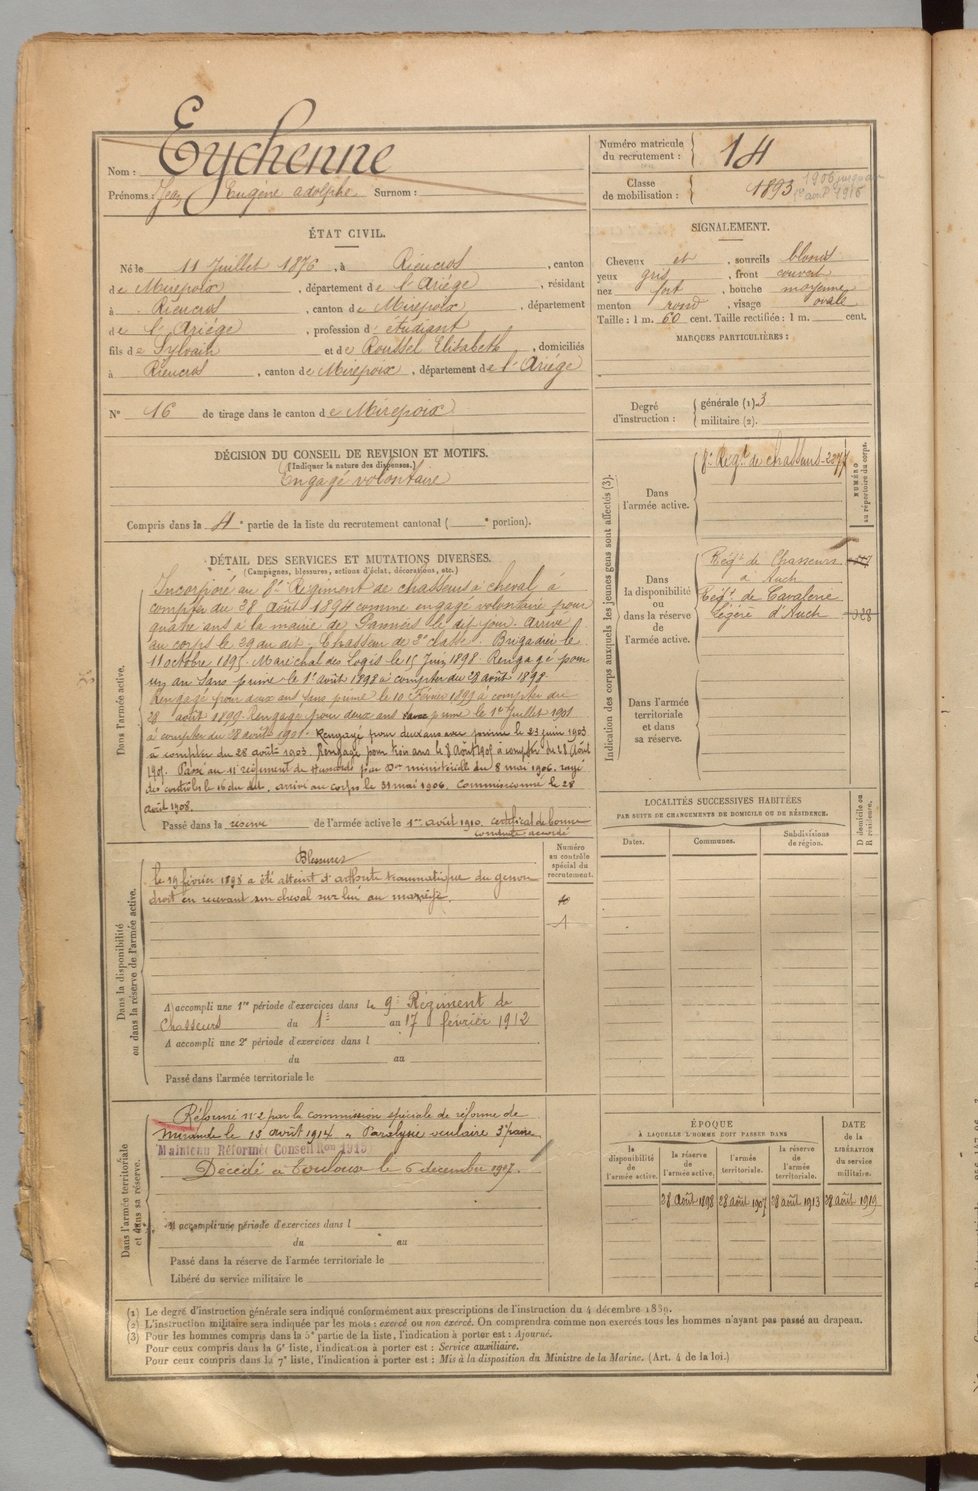 Nom : Eychenne
Prénoms : Jean Eugène adolphe Surnom :
Numéro matricule
du recrutement : 14
Classe
de mobilisation : 1893
1906
1916
ÉTAT CIVIL.
Né le 11 Juillet 1876, à Rieucros, canton
de Mirepoix, département de l'Ariége, résidant
à Rieucros, canton de Mirepoix, département
de l'Ariége, profession d'étudiant
fils de Sylvain et de Roussel Elisabeth, domiciliés
à Rieucros, canton de Mirepoix, département de l'Ariége
N° 16 de tirage dans le canton de Mirepoix
SIGNALEMENT.
Cheveux et, sourcils blonds
yeux gris, front couvert
nez fort, bouche moyenne
menton rond, visage ovale
Taille : 1 m. 60 cent. Taille rectifiée : 1 m. cent.
MARQUES PARTICULIÈRES :
Degré
d'instruction :
générale (1) 3
militaire (2).
DÉCISION DU CONSEIL DE REVISION ET MOTIFS.
(Indiquer la nature des dispenses.)
Engagé volontaire
Compris dans la 4e partie de la liste du recrutement cantonal ( e portion).
DÉTAIL DES SERVICES ET MUTATIONS DIVERSES.
(Campagnes, blessures, actions d'éclat, décorations, etc.)
Dans l'armée active.
Incorporé au 8e Régiment de chasseurs à cheval à
compter du 28 Août 1894 comme engagé volontaire pour
quatre ans à la mairie de Pamiers le dit jour. Arrivé
au corps le 29 du dit. Chasseur de 2e classe. Brigadier le
11 octobre 1895. Maréchal des Logis le 15 Juin 1898. Rengagé pour
un an sans prime le 1er août 1898 à compter du 28 août 1898.
Rengagé pour deux ans sans prime le 10 Février 1899 à compter du
28 août 1899. Rengagé pour deux ans prime le 1er Juillet 1901
à compter du 28 août 1901. Rengagé pour deux ans avec prime le 23 juin 1903
à compter du 28 août 1903. Rengagé pour trois ans le 8 Août 1905 à compter du 28 Août
1905. Passé au 11e régiment de Hussards par Don ministérielle du 8 mai 1906, rayé
des contrôles le 16 du dit, arrivé au corps le 31 mai 1906. Commissionné le 28
août 1908.
Passé dans la réserve de l'armée active le 1er avril 1910. certificat de bonne
conduite accordé
Indication des corps auxquels les jeunes gens sont affectés (3).
NUMÉRO
au répertoire du corps.
Dans
l'armée active.
8e Régt de chasseurs
Dans
la disponibilité
ou
dans la réserve
de
l'armée active.
Régt de Chasseurs
à Auch
Régt de Cavalerie
Légère d'Auch
Dans l'armée
territoriale
et dans
sa réserve.
LOCALITÉS SUCCESSIVES HABITÉES
PAR SUITE DE CHANGEMENTS DE DOMICILE OU DE RÉSIDENCE.
Dates.
Communes.
Subdivisions
de région.
D domicile ou
R résidence.
Dans la disponibilité
ou dans la réserve de l'armée active.
Numéro
au contrôle
spécial du
recrutement.
Blessures
Le 19 février 1898 a été atteint d'arthrite traumatique du genou
droit en recevant son cheval sur lui au manège.
A accompli une 1re période d'exercices dans le 9e Régiment de
Chasseurs du 1er au 17 février 1912
A accompli une 2e période d'exercices dans l
du au
Passé dans l'armée territoriale le
Dans l'armée territoriale
et dans sa réserve.
Réformé n° 2 par la commission spéciale de réforme de
Mirande le 13 août 1914. Paralysie oculaire 3e paire
Maintenu Réformé Conseil Ron 1915
Décédé à Toulouse le 6 décembre 1917.
A accompli une période d'exercices dans l
du au
Passé dans la réserve de l'armée territoriale le
Libéré du service militaire le
ÉPOQUE
À LAQUELLE L'HOMME DOIT PASSER DANS
DATE
de la
LIBÉRATION
du service
militaire.
la
disponibilité
de
l'armée active.
la réserve
de
l'armée active.
l'armée
territoriale.
la réserve
de
l'armée
territoriale.
28 août 1898 28 août 1907 28 août 1913 28 août 1919
(1) Le degré d'instruction générale sera indiqué conformément aux prescriptions de l'instruction du 4 décembre 1889.
(2) L'instruction militaire sera indiquée par les mots : exercé ou non exercé. On comprendra comme non exercés tous les hommes n'ayant pas passé au drapeau.
(3) Pour les hommes compris dans la 5e partie de la liste, l'indication à porter est : Ajourné.
Pour ceux compris dans la 6e liste, l'indication à porter est : Service auxiliaire.
Pour ceux compris dans la 7e liste, l'indication à porter est : Mis à la disposition du Ministre de la Marine. (Art. 4 de la loi.)